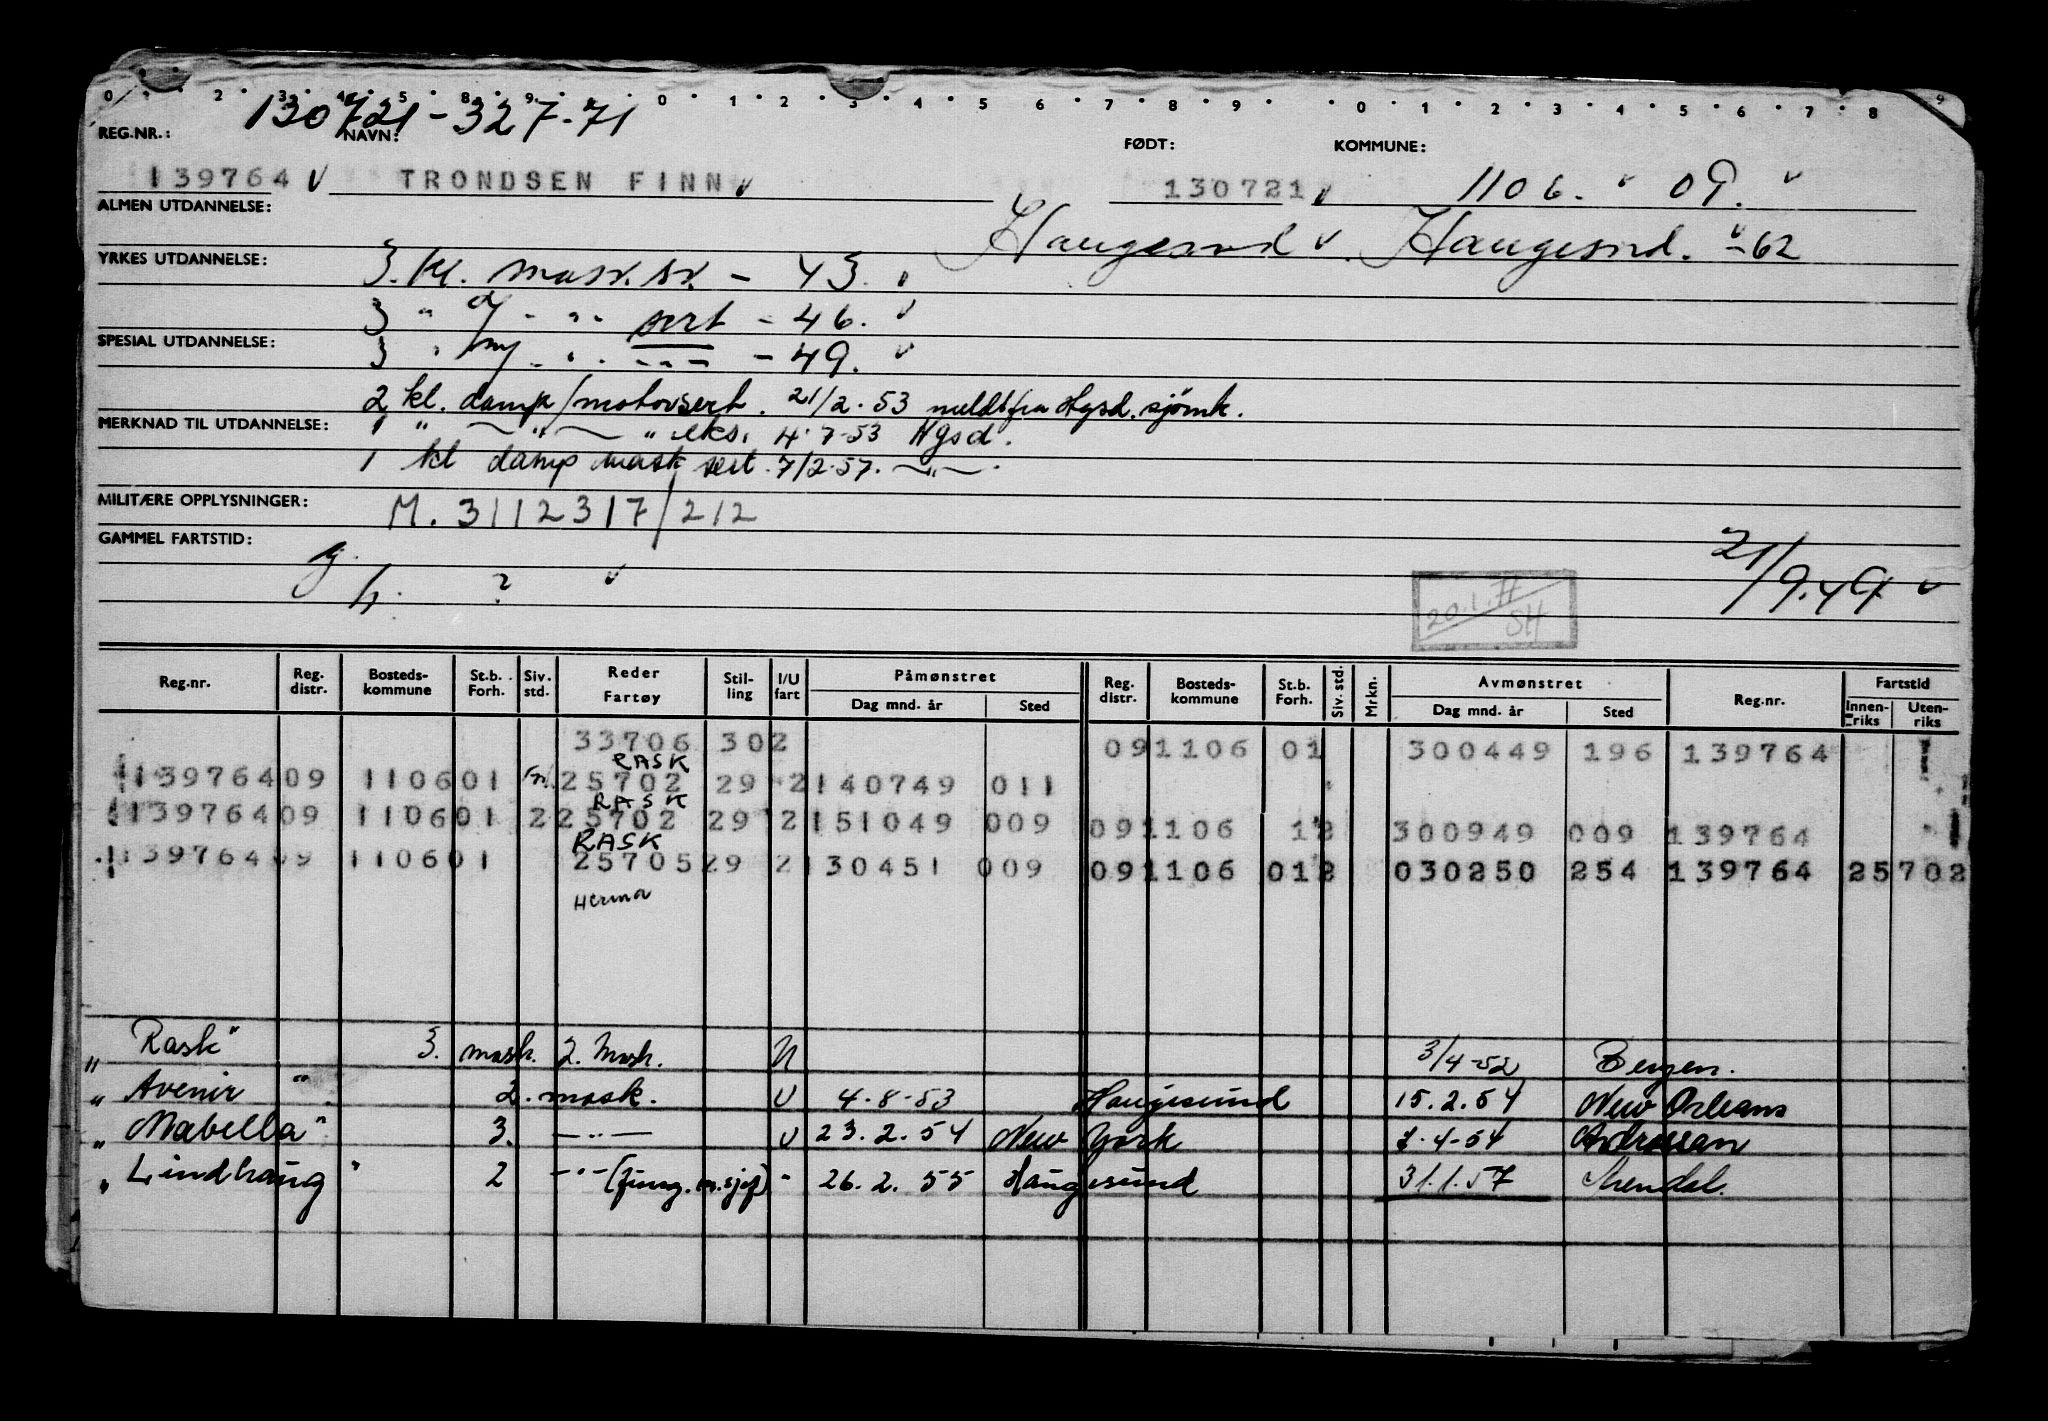 0 1 2 3 4 5 8 9 0 1 2 3 4 5 6 7 8 9 0 1 2 3 4 5 6 7 8 9
130721-327-71
REG.NR.: NAVN: FØDT: KOMMUNE:
139764 v TRONDSEN FINN v 130721 v 1106. 09. v
ALMEN UTDANNELSE:
Haugesund v. Haugesund. -62
YRKES UTDANNELSE: 3. kl. mask.sk. - 43. v
3 " " " sert - 46. v
SPESIAL UTDANNELSE: 3 " " " -"- - 49. v
2 kl. damp/motorsert. 21/2-53 meldt fra Hgsd. sjömk.
MERKNAD TIL UTDANNELSE: 1 " " " eks. 4-7-53 Hgsd.
1 kl damp mask sert. 7/2-57. -"-
MILITÆRE OPPLYSNINGER: M. 3112317/212
GAMMEL FARTSTID:
? v 21/9.49 v
20.1.71 SH
Reg.nr. Reg. distr. Bosteds-kommune St.b. Forh. Siv. std. Reder Fartøy Stil-ling I/U fart Påmønstret Dag mnd. år Sted Reg. distr. Bosteds-kommune St.b. Forh. Siv. std. Mrkn. Avmønstret Dag mnd. år Sted Reg.nr. Fartstid Innen-riks Uten-riks
33706 302 091106 01 300449 196 139764
RASK
139764 09 1106 01 25702 29 2 140749 011
RASK
139764 09 1106 01 2 25702 29 2 151049 009 091106 12 300949 009 139764
RASK
139764 09 1106 01 25705 29 2 130451 009 091106 012 030250 254 139764 25702
Herma
"Rask" 3. mask. 2. Mask. U 3/4-52 Bergen.
"Avenir" 2. mask. U 4-8-53 Haugesund 15.2.54 New Orleans
"Mabella" 3. -"- U 23.2.54 New York 7-4-54 Ardrossan
"Lindhaug" 2 -"- (fung. m.sjef) " 26.2.55 Haugesund 31.1.57